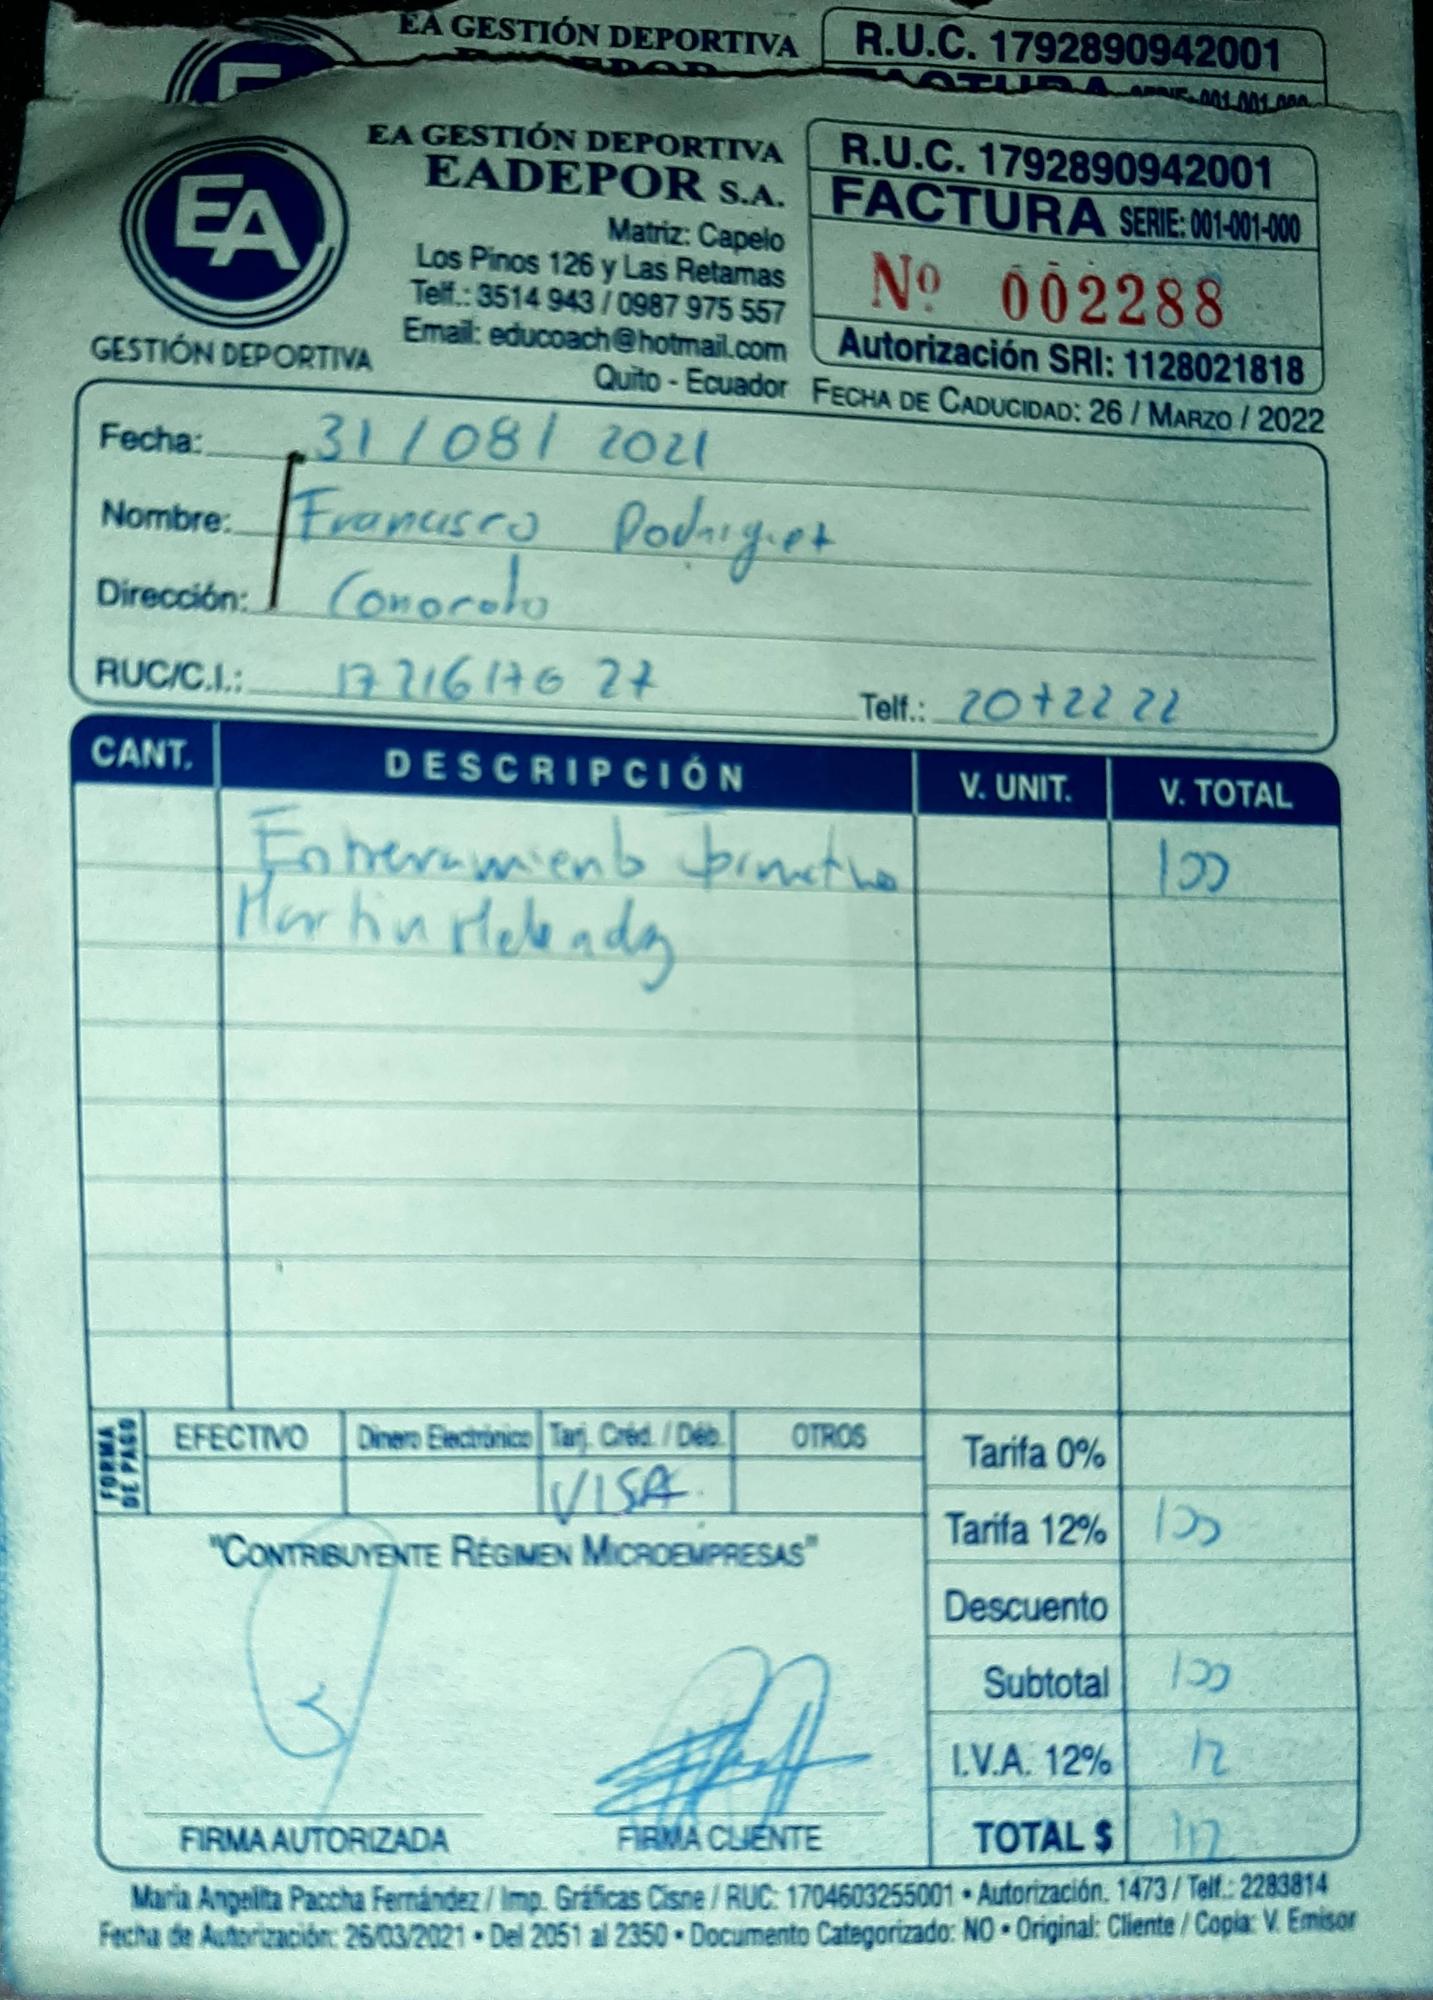 EA GESTIÓN DEPORTIVA
R.U.C. 1792890942001
EA
EA GESTIÓN DEPORTIVA
EADEPOR S.A.
Matriz: Capelo
Los Pinos 126 y Las Retamas
Telf.: 3514 943 / 0987 975 557
Email: educoach@hotmail.com
Quito - Ecuador
GESTIÓN DEPORTIVA
R.U.C. 1792890942001
FACTURA SERIE: 001-001-000
Nº 002288
Autorización SRI: 1128021818
FECHA DE CADUCIDAD: 26 / MARZO / 2022
Fecha: 31/08/2021
Nombre: Francisco Rodriguez
Dirección: Conocoto
RUC/C.I.: 1721617627
Telf.: 2072222
CANT. DESCRIPCIÓN V. UNIT. V. TOTAL
Entrenamiento formativo 100
Martin
FORMA DE PAGO
EFECTIVO Dinero Electrónico Tarj. Créd. / Déb. OTROS
VISA
"CONTRIBUYENTE RÉGIMEN MICROEMPRESAS"
Tarifa 0%
Tarifa 12% 100
Descuento
Subtotal 100
I.V.A. 12% 12
TOTAL $ 112
FIRMA AUTORIZADA FIRMA CLIENTE
María Angelita Paccha Fernández / Imp. Gráficas Cisne / RUC: 1704603255001 • Autorización. 1473 / Telf.: 2283814
Fecha de Autorización: 26/03/2021 • Del 2051 al 2350 • Documento Categorizado: NO • Original: Cliente / Copia: V. Emisor